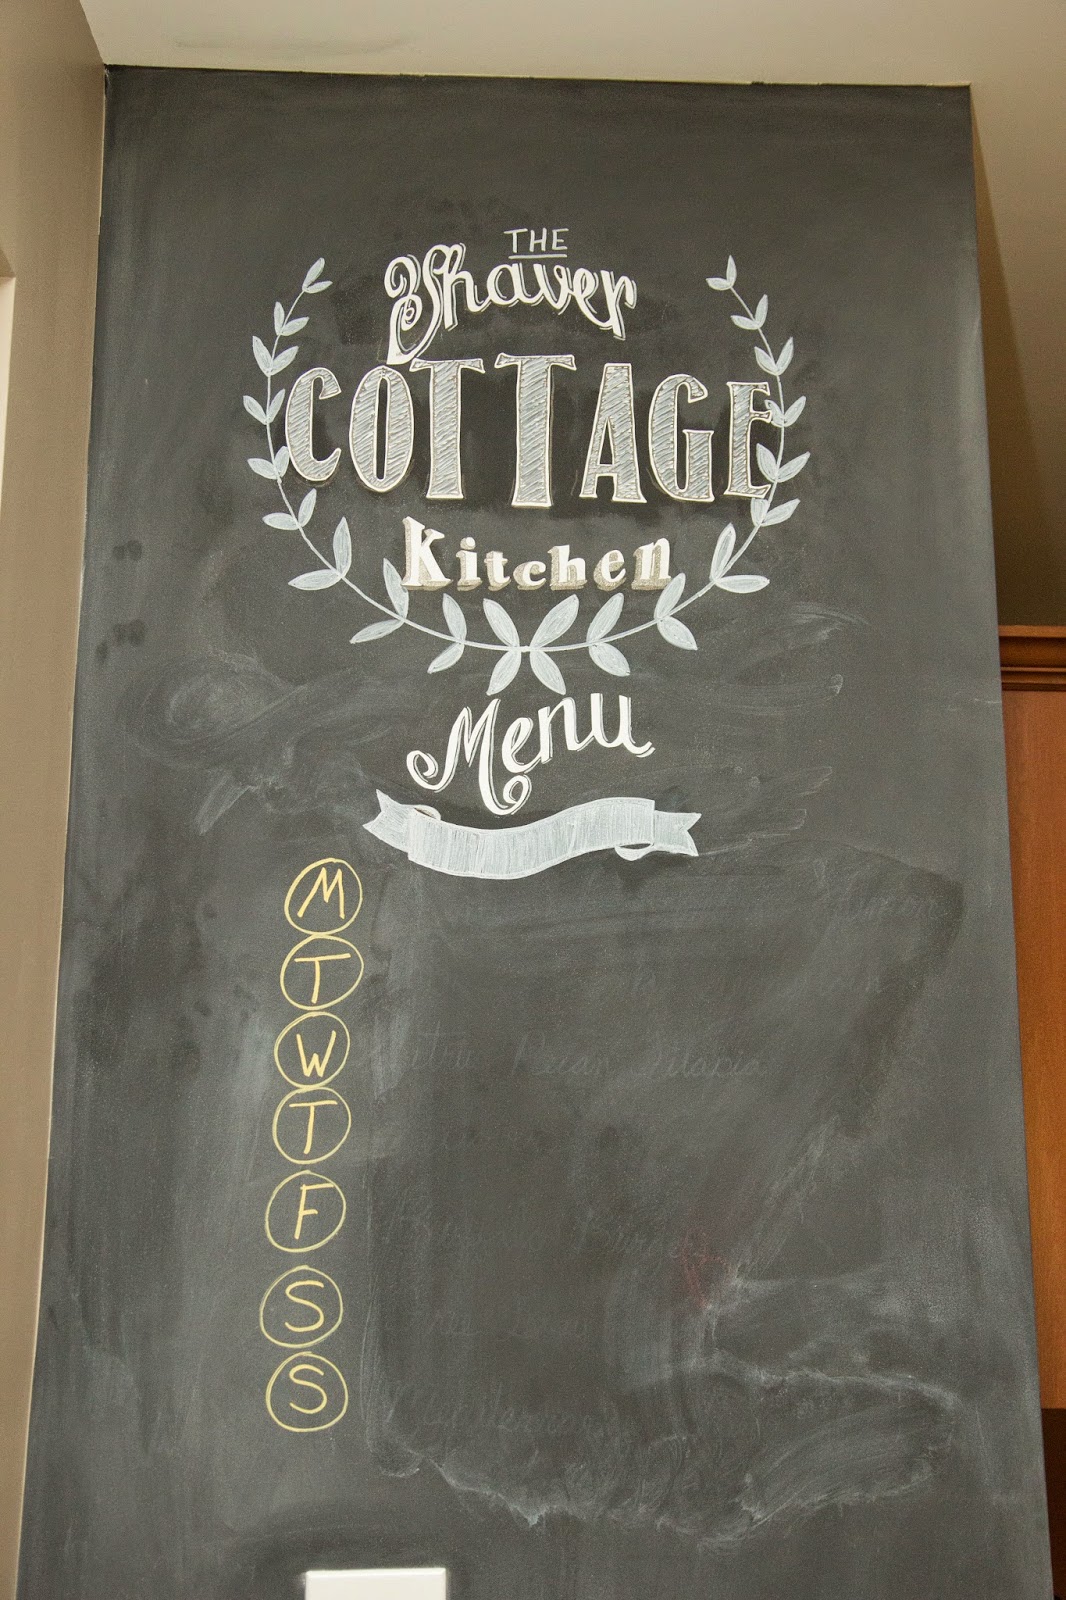 THE
Shaver
COTTAGE
Kitchen
Menu
M
T
W
T
F
S
S